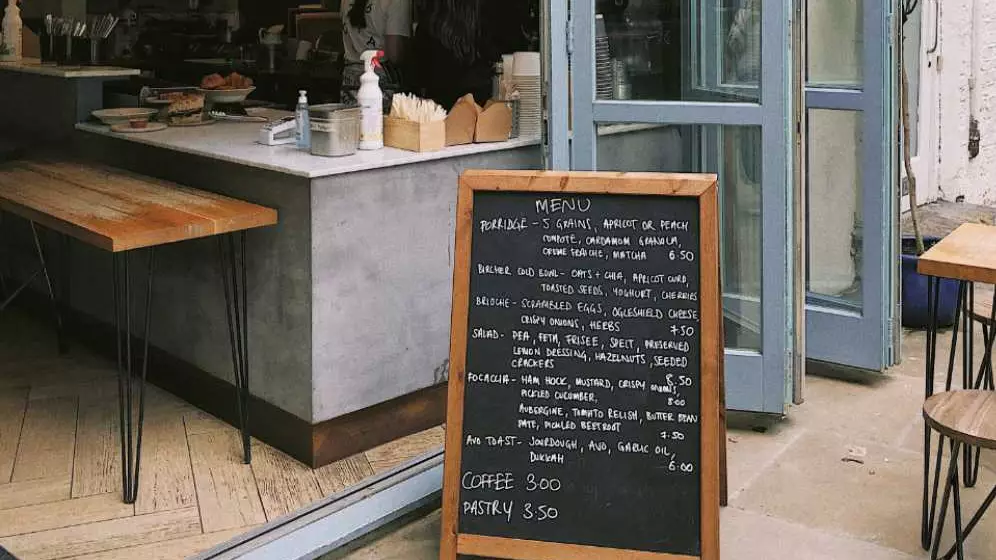 MENU
PORRIDGE - 5 GRAINS, APRICOT OR PEACH
COMPOTE, CARDAMOM GRANOLA,
CREME FRAICHE, MATCHA 6.50
BIRCHER COLD BOWL - OATS + CHIA, APRICOT CURD,
TOASTED SEEDS, YOGHURT, CHERRIES
BRIOCHE - SCRAMBLED EGGS, OGLESHIELD CHEESE,
CRISPY ONIONS, HERBS 7.50
SALAD - PEA, FETA, FRISEE, SPELT, PRESERVED
LEMON DRESSING, HAZELNUTS, SEEDED
CRACKERS 8.50
FOCACCIA - HAM HOCK, MUSTARD, CRISPY ONIONS,
PICKLED CUCUMBER, 8.00
AUBERGINE, TOMATO RELISH, BUTTER BEAN
PATE, PICKLED BEETROOT 7.50
AVO TOAST - SOURDOUGH, AVO, GARLIC OIL,
DUKKAH 6.00
COFFEE 3.00
PASTRY 3.50